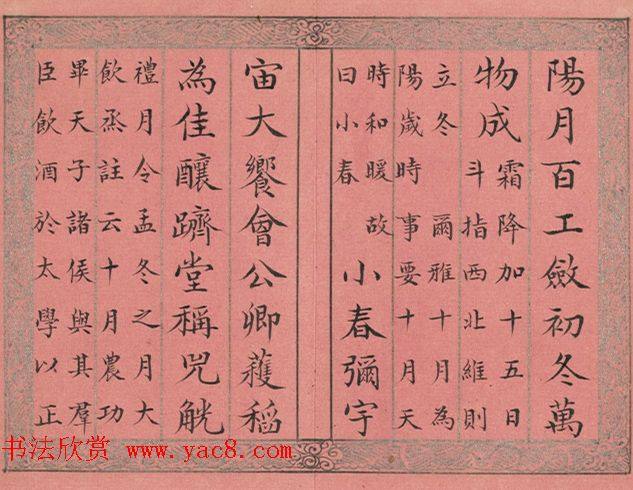 陽月百工斂初冬萬
物成
霜降加十五日
斗指西北維則
立冬 爾雅十月為
陽歲時事要十月天
時和暖故
曰小春
小春彌宇
宙大饗會公卿穫稻
為佳釀躋堂稱兕觥
禮月令孟冬之月大
飲烝註云十月農功
畢天子諸侯與其羣
臣飲酒於太學以正
书法欣赏 www.yac8.com